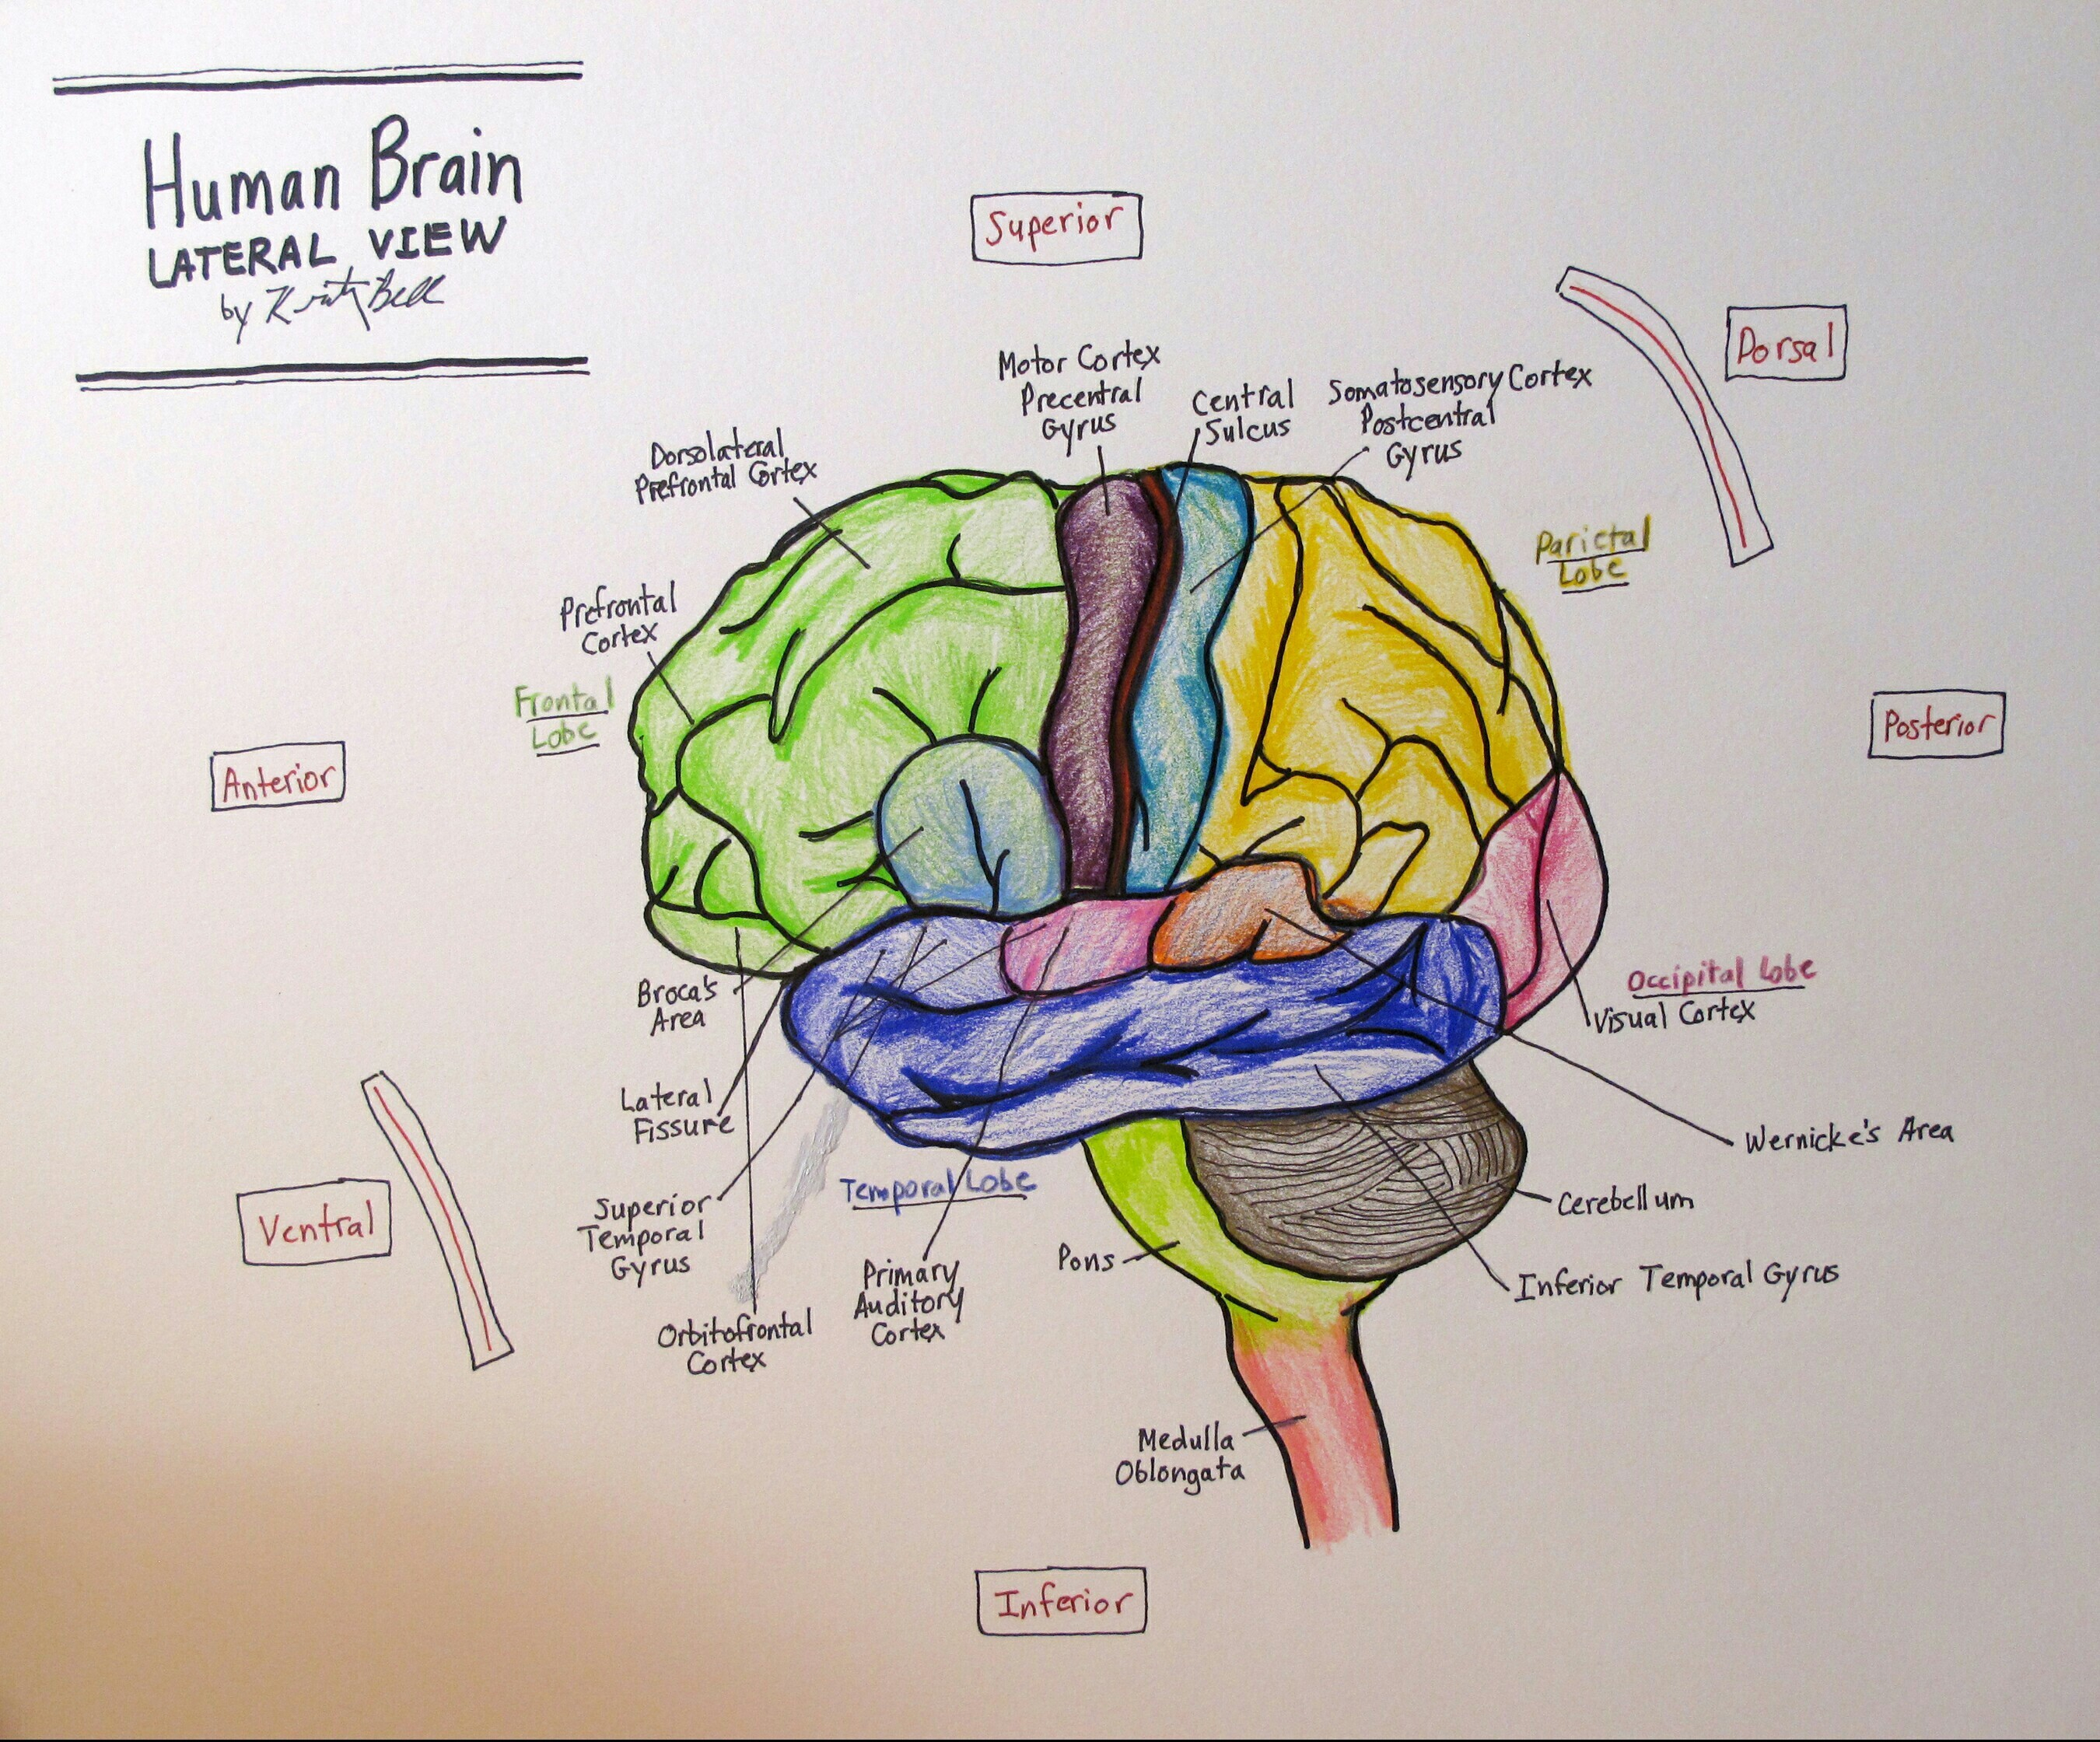 Human Brain
LATERAL VIEW
by Kristy Bell
Superior
Dorsal
Motor Cortex
Precentral
Gyrus
Central
Sulcus
Somatosensory Cortex
Postcentral
Gyrus
Dorsolateral
Prefrontal Cortex
Parietal
Lobe
Prefrontal
Cortex
Frontal
Lobe
Anterior
Posterior
Broca's
Area
Occipital Lobe
Visual Cortex
Lateral
Fissure
Wernicke's Area
Ventral
Superior
Temporal
Gyrus
Temporal Lobe
Cerebellum
Pons
Inferior Temporal Gyrus
Primary
Auditory
Cortex
Orbitofrontal
Cortex
Medulla
Oblongata
Inferior